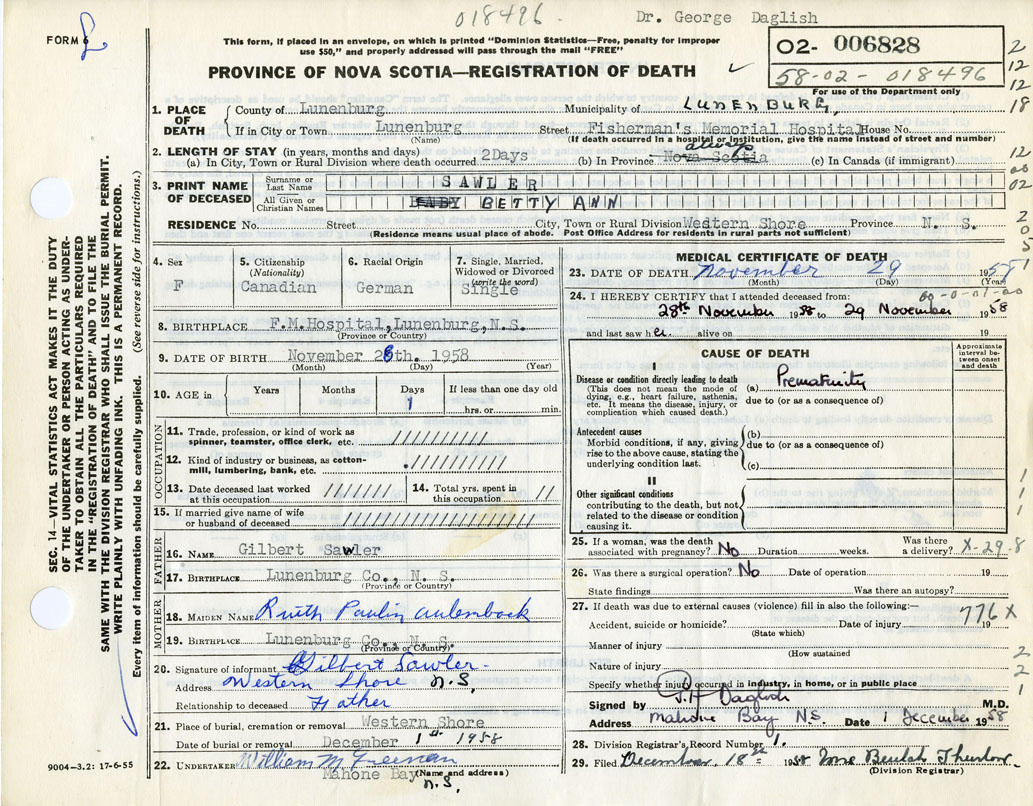 018496
Dr. George Daglish
FORM
This form, if placed in an envelope, on which is printed "Dominion Statistics—Free, penalty for improper
use $50," and properly addressed will pass through the mail "FREE"
02- 006828
58-02-018496
For use of the Department only
PROVINCE OF NOVA SCOTIA—REGISTRATION OF DEATH
2
12
12
18
12
02
1. PLACE OF DEATH
County of Lunenburg Municipality of LUNENBURG,
If in City or Town Lunenburg Street Fisherman's Memorial Hospital House No.
(Name) (If death occurred in a hospital or institution, give name instead of street and number)
2. LENGTH OF STAY (in years, months and days)
(a) In City, Town or Rural Division where death occurred 2Days (b) In Province always Nova Scotia (c) In Canada (if immigrant)
3. PRINT NAME OF DECEASED
Surname or Last Name SAWLER
All Given or Christian Names BABY BETTY ANN
RESIDENCE No. Street City, Town or Rural Division Wedtern Shore Province N. S.
(Residence means usual place of abode. Post Office Address for residents in rural parts not sufficient)
4. Sex
F
5. Citizenship
(Nationality)
Canadian
6. Racial Origin
German
7. Single, Married, Widowed or Divorced
(write the word)
Single
8. BIRTHPLACE F.M.Hospital, Lunenburg, N.S.
(Province or Country)
9. DATE OF BIRTH November 28th. 1958
(Month) (Day) (Year)
10. AGE in Years Months Days If less than one day old
1 hrs. or min.
OCCUPATION
11. Trade, profession, or kind of work as
spinner, teamster, office clerk, etc.
12. Kind of industry or business, as cotton-
mill, lumbering, bank, etc.
13. Date deceased last worked
at this occupation
14. Total yrs. spent in
this occupation
15. If married give name of wife
or husband of deceased
FATHER
16. NAME Gilbert Sawler
17. BIRTHPLACE Lunenburg Co., N. S.
(Province or Country)
MOTHER
18. MAIDEN NAME Ruth Paulin Aulenback
19. BIRTHPLACE Lunenburg Co., N. S.
(Province or Country)
20. Signature of informant Gilbert Sawler
Address Western Shore N.S.
Relationship to deceased Father
21. Place of burial, cremation or removal Western Shore
Date of burial or removal December 1st 1958
22. UNDERTAKER William M Freeman
Mahone Bay (Name and address)
N.S.
MEDICAL CERTIFICATE OF DEATH
23. DATE OF DEATH November 29 1958
(Month) (Day) (Year)
00-0-01-00
24. I HEREBY CERTIFY that I attended deceased from:
28th November 1958 to 29 November 1958
and last saw her alive on 19
CAUSE OF DEATH
Approximate interval between onset and death
I
Disease or condition directly leading to death
(This does not mean the mode of
dying, e.g., heart failure, asthenia,
etc. It means the disease, injury, or
complication which caused death.)
(a) Prematurity
due to (or as a consequence of)
Antecedent causes
Morbid conditions, if any, giving
rise to the above cause, stating the
underlying condition last.
(b)
due to (or as a consequence of)
(c)
II
Other significant conditions
contributing to the death, but not
related to the disease or condition
causing it.
1
1
1
25. If a woman, was the death
associated with pregnancy? No Duration weeks. Was there
a delivery? X-29-8
26. Was there a surgical operation? No Date of operation 19
State findings Was there an autopsy?
27. If death was due to external causes (violence) fill in also the following:—
Accident, suicide or homicide? Date of injury 19
(State which)
776X
Manner of injury
(How sustained
Nature of injury
Specify whether injury occurred in industry, in home, or in public place
2
2
1
Signed by J.H. Daglish M.D.
Address Mahone Bay NS. Date 1 December 1958
28. Division Registrar's Record Number 1.
29. Filed December 18th 1958 Mrs Beulah Thurlow
(Division Registrar)
SEC. 14—VITAL STATISTICS ACT MAKES IT THE DUTY
OF THE UNDERTAKER OR PERSON ACTING AS UNDER-
TAKER TO OBTAIN ALL THE PARTICULARS REQUIRED
IN THE "REGISTRATION OF DEATH" AND TO FILE THE
SAME WITH THE DIVISION REGISTRAR WHO SHALL ISSUE THE BURIAL PERMIT.
WRITE PLAINLY WITH UNFADING INK. THIS IS A PERMANENT RECORD.
Every item of information should be carefully supplied. (See reverse side for instructions.)
9004-3.2: 17-6-55